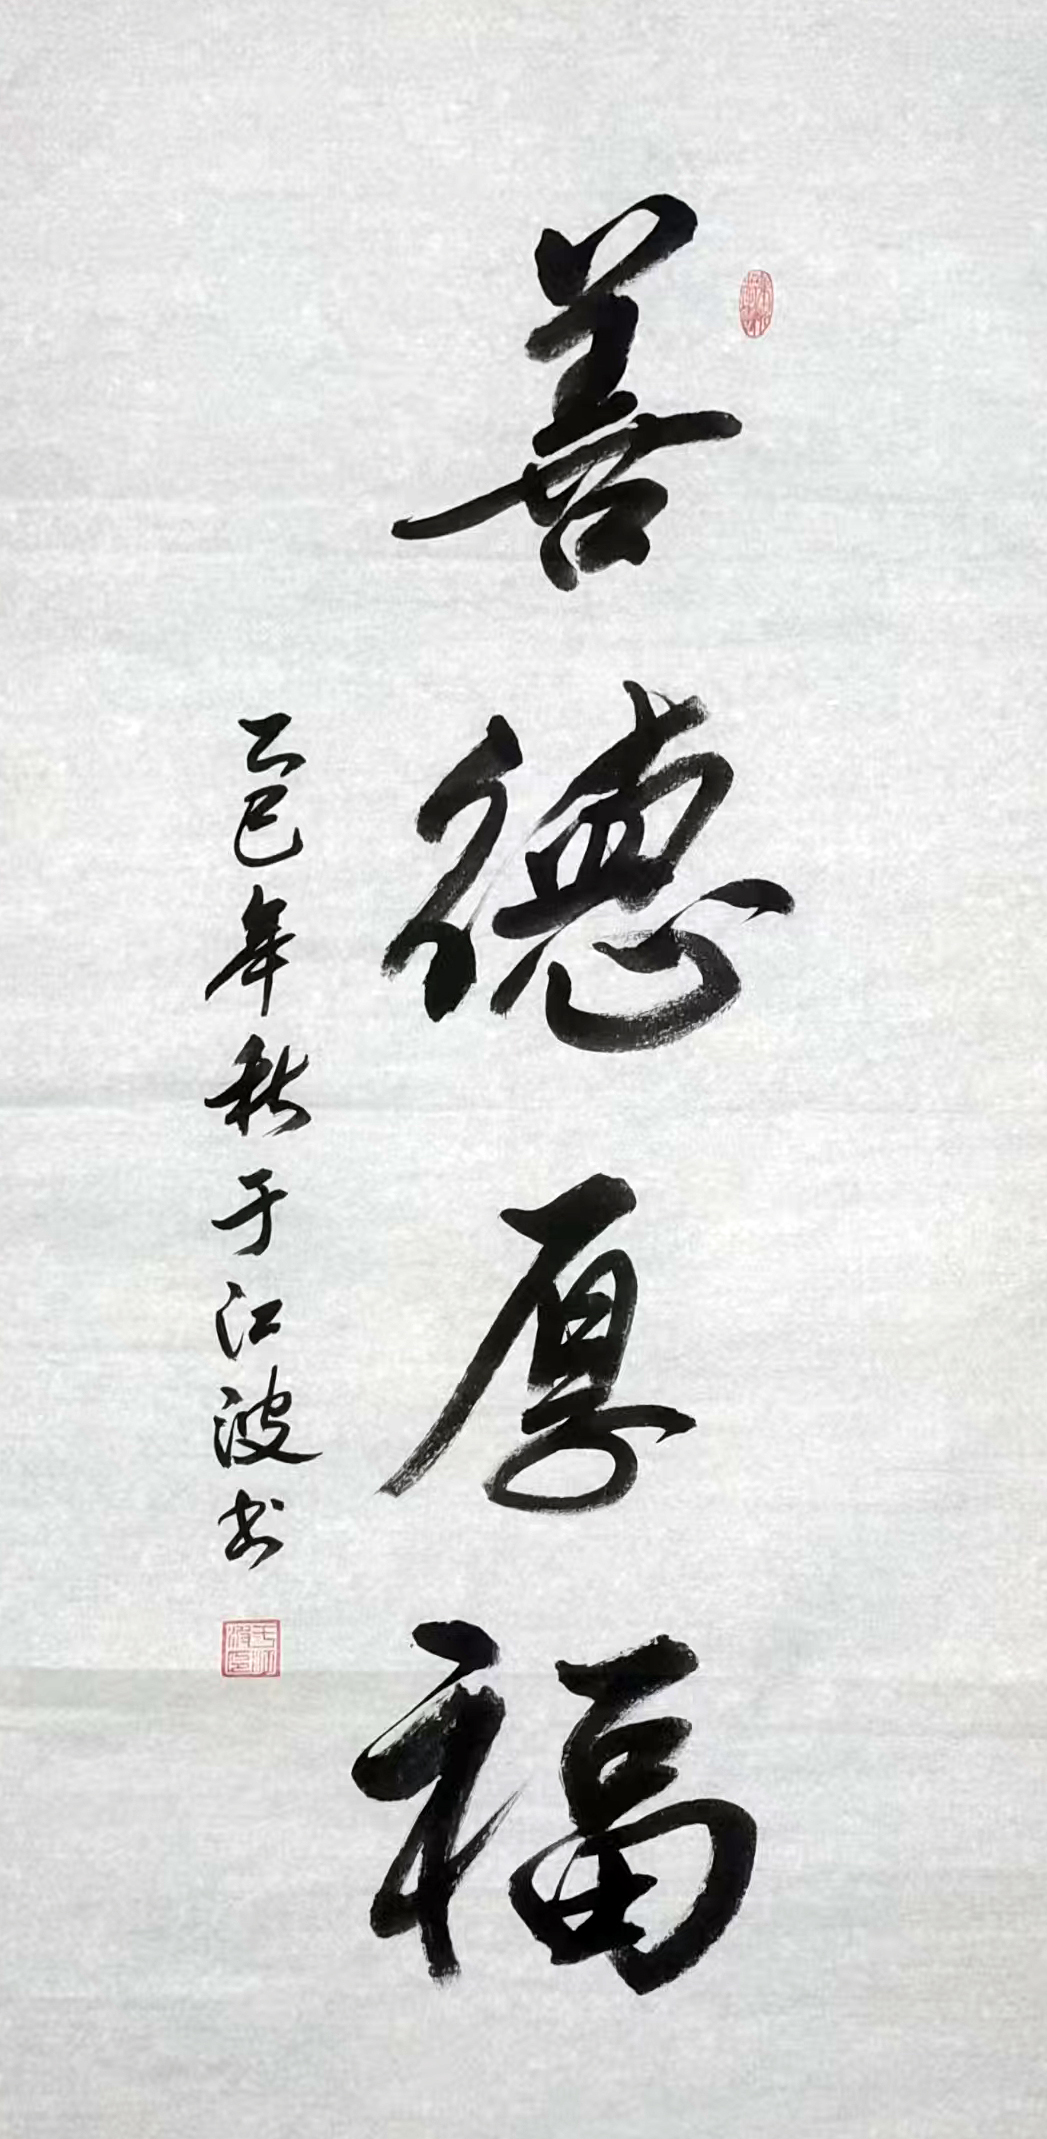 善德厚福
乙巳年秋于江波书